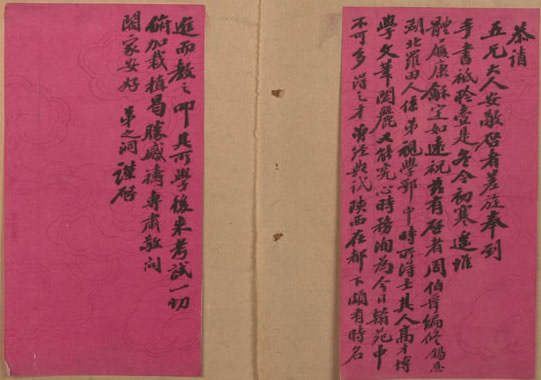 恭請
五兄大人安敬啓者差旋奉到
手書祗聆壹是冬令初寒遙維
體履康龢定如遠祝茲有啓者周伯晉編修錫恩
湖北羅田人係弟視學鄂中時所得士其人高才博
學文筆閎麗又能究心時務洵為今日翰苑中
不可多得之才曾經典試陝西在都下頗有時名
進而教之叩其所學後來考試一切
俯加栽植曷勝感禱專肅敬問
閤家安好 弟之洞謹啓